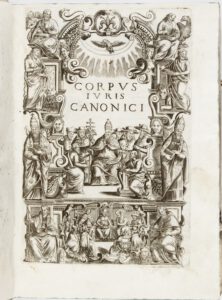 CORPVS
IVRIS
CANONICI